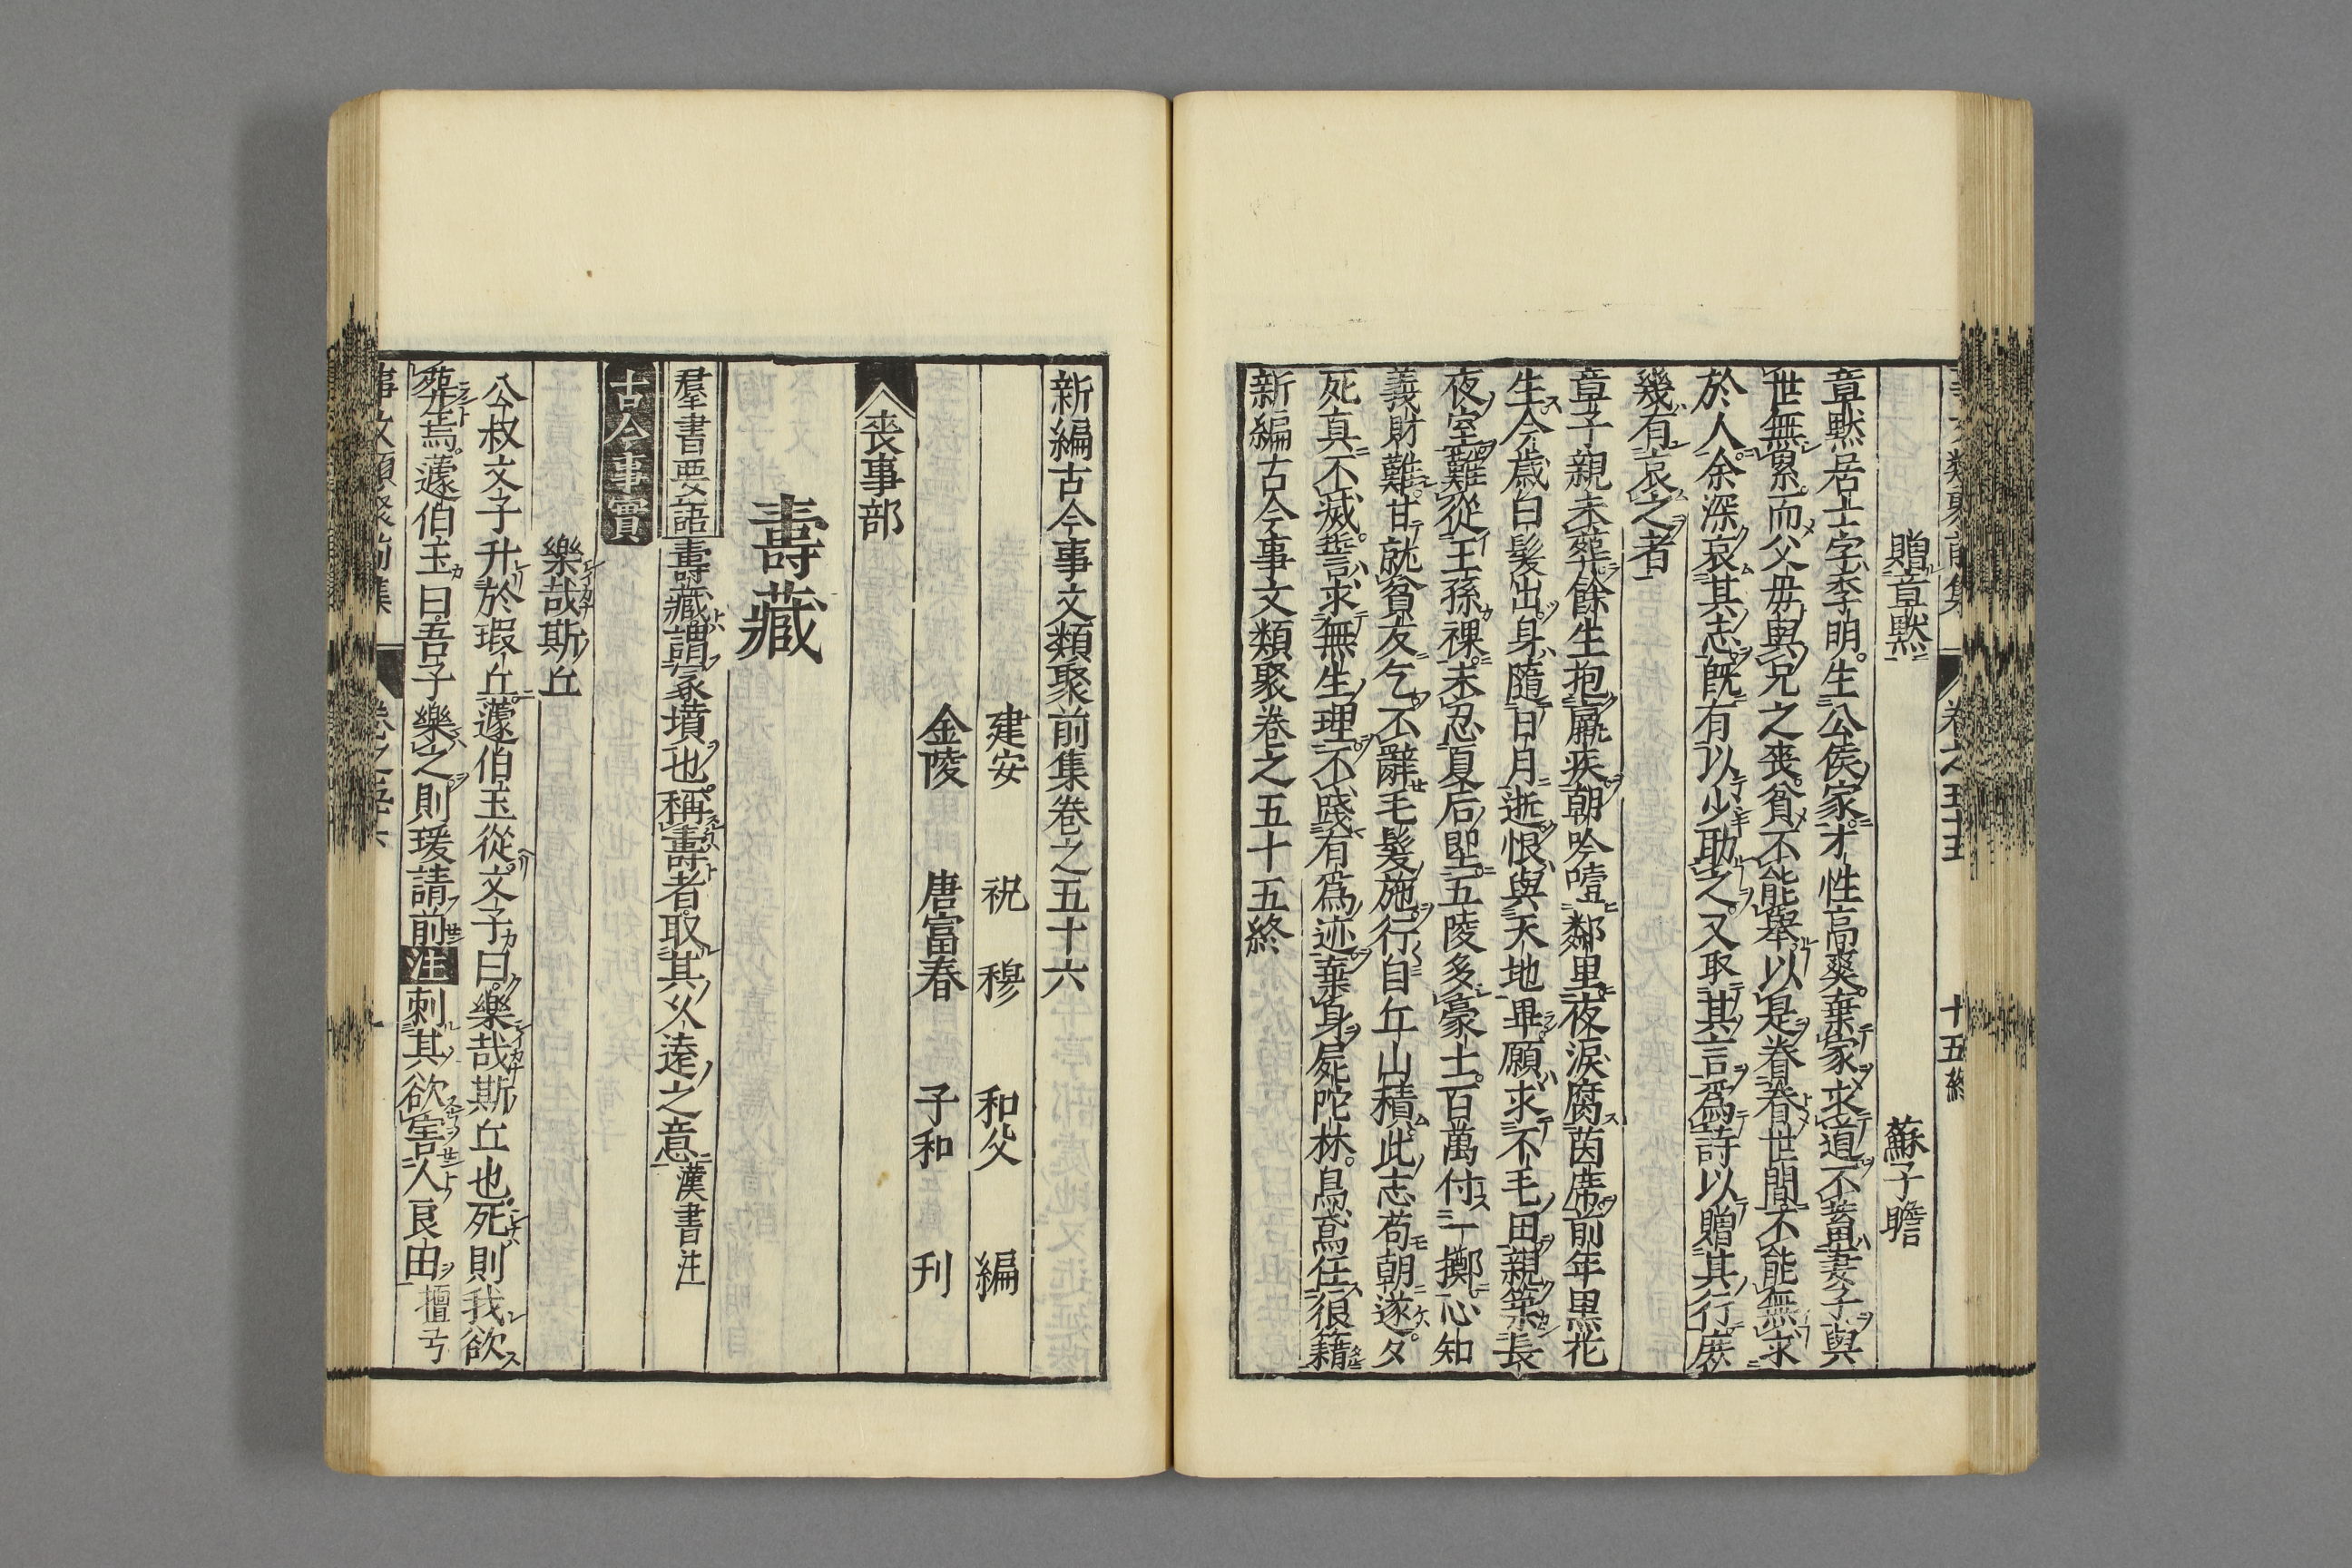 贈章黙 蘇子瞻
章黙居士字季明生公侯家才性高爽棄家求道不蓄妻子與
世無累而父母與兄之喪貧不能舉以是眷眷世間不能無求
於人余深哀其志既有以少助之又取其言爲詩以贈其行庻
幾有哀之者
章子親未葬餘生抱羸疾朝吟噎鄰里夜涙腐茵席前年黒花
生今歳白髮出身隨日月逝恨與天地畢願求不毛田親築長
夜室難從王孫裸未忍夏后堲五陵多豪士百萬付一擲心知
義財難甘就貧友乞不辭毛髮施行自丘山積此志苟朝遂夕
死真不滅誓求無生理不踐有爲迹棄身屍陀林烏鳶任狼籍
新編古今事文類聚卷之五十五終
新編古今事文類聚前集卷之五十六
建安 祝 穆 和父 編
金陵 唐富春 子和 刊
喪事部
壽藏
羣書要語 壽藏謂冢墳也稱壽者取其久遠之意漢書注
古今事實
樂哉斯丘
公叔文子升於瑕丘蘧伯玉從文子曰樂哉斯丘也死則我欲
葬焉蘧伯玉曰吾子樂之則瑗請前注刺其欲害人良田檀弓